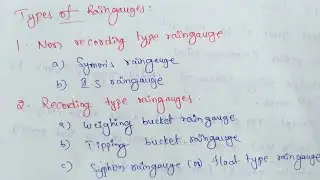 Types of Raingauges:
1. Non recording type raingauge
a) Symon's raingauge
b) I.S raingauge
2. Recording type raingauges.
a) Weighing bucket raingauge
b) Tipping bucket raingauge
c) Syphon raingauge (or) float type raingauge